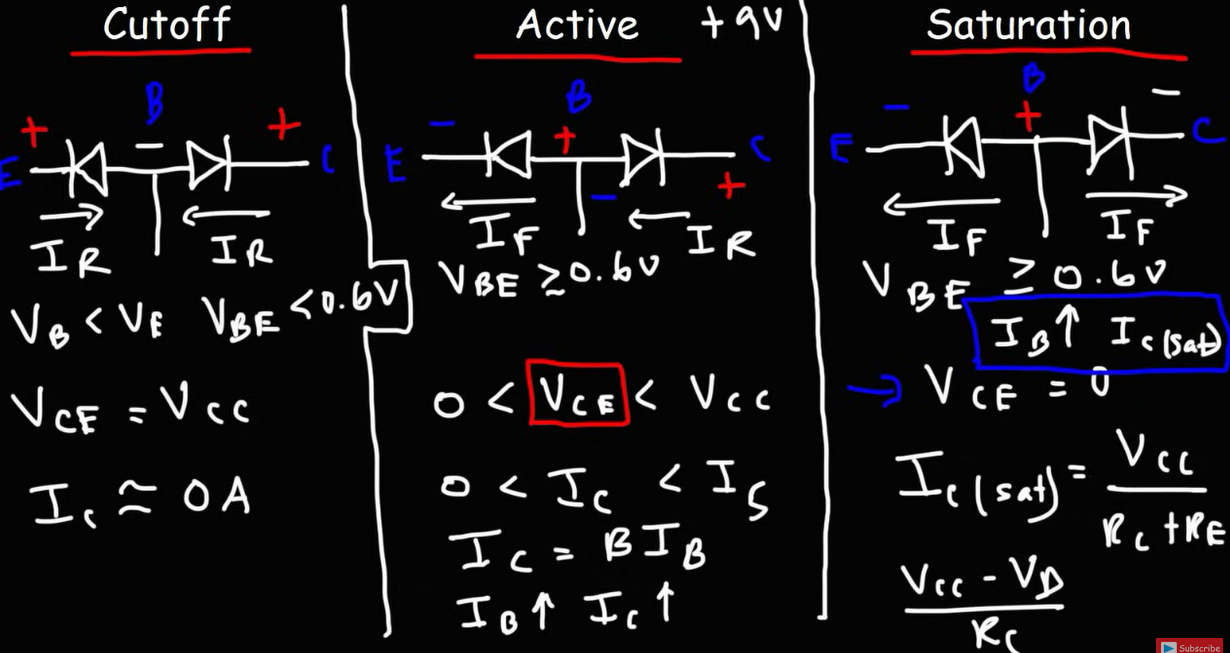 Cutoff
B
+ − +
E C
I_R I_R
V_B < V_E V_BE < 0.6V
V_CE = V_CC
I_C ≈ 0 A
Active +9V
B
− +
E C
− +
I_F I_R
V_BE ≥ 0.6V
0 < V_CE < V_CC
0 < I_C < I_S
I_C = B I_B
I_B ↑ I_C ↑
Saturation
B
− + −
E C
I_F I_F
V_BE ≥ 0.6V
I_B ↑ I_C(sat)
→ V_CE = 0
I_C(sat) = V_CC / R_C + R_E
V_CC − V_D / R_C
Subscribe